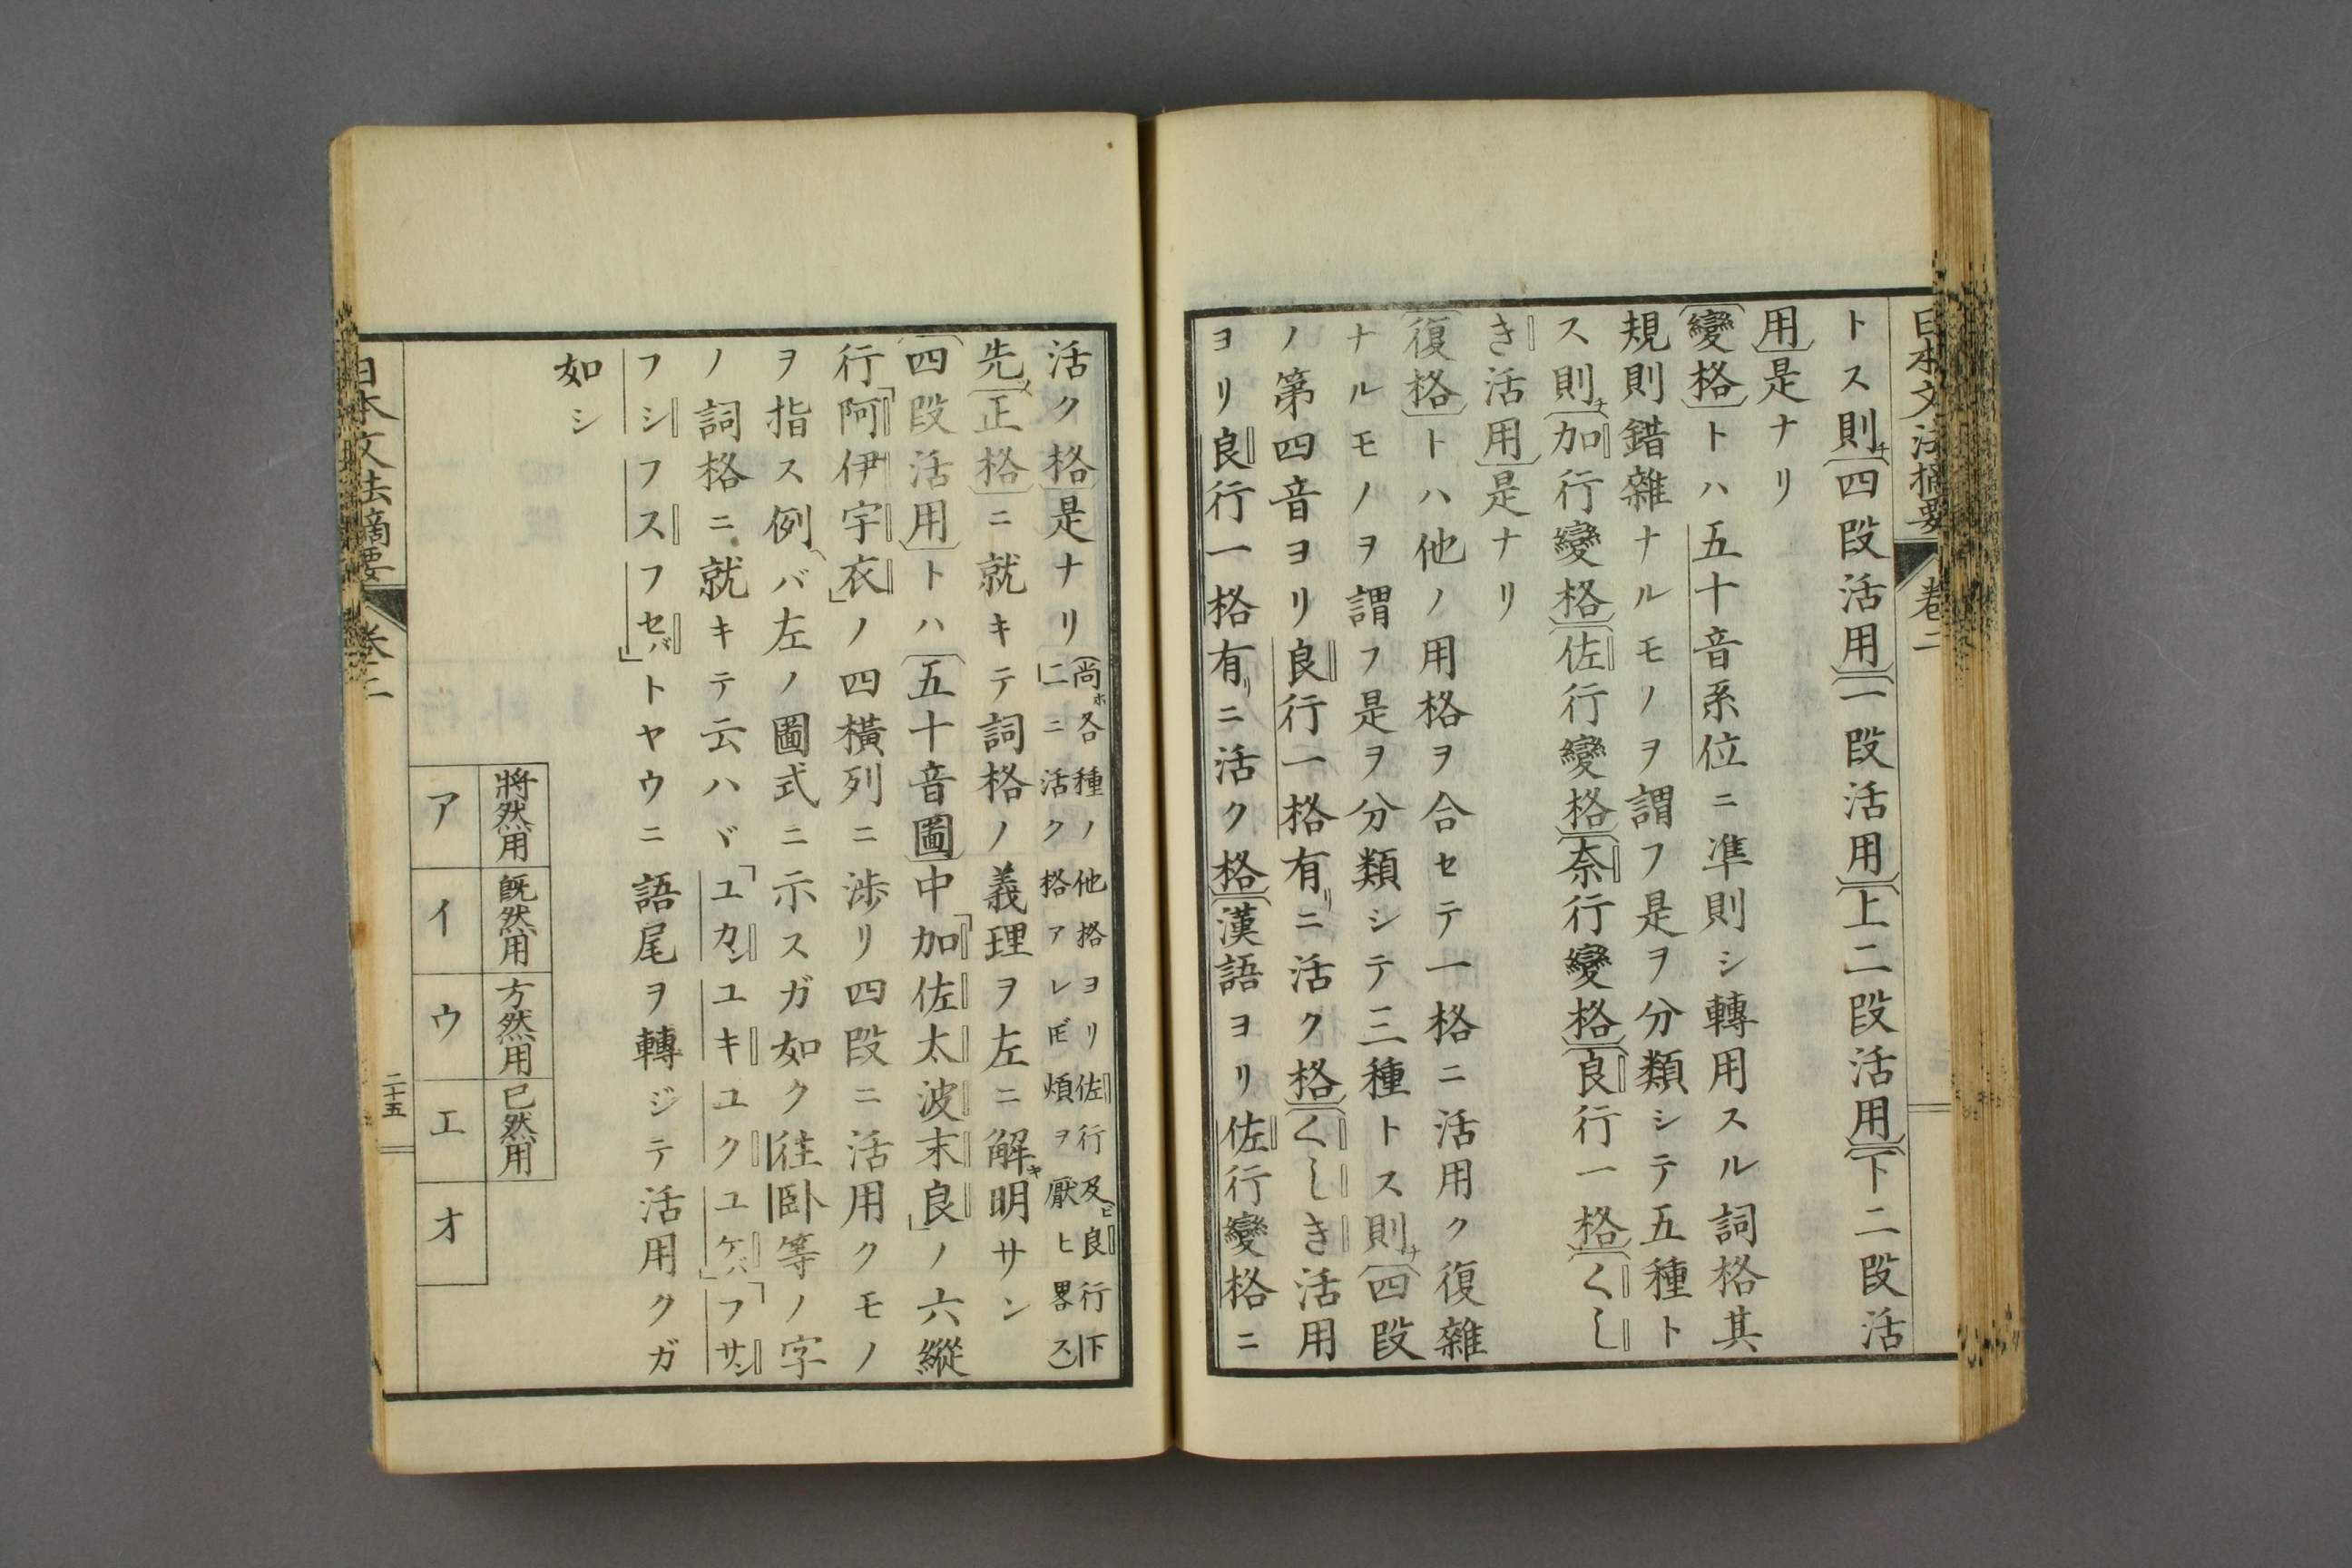 日本文法摘要 卷二
トス則チ四段活用一段活用上二段活用下二段活
用是ナリ
變格トハ五十音系位ニ準則シ轉用スル詞格其
規則錯雜ナルモノヲ謂フ是ヲ分類シテ五種ト
ス則チ加行變格佐行變格奈行變格良行一格くし
き活用是ナリ
復格トハ他ノ用格ヲ合セテ一格ニ活用ク復雜
ナルモノヲ謂フ是ヲ分類シテ三種トス則チ四段
ノ第四音ヨリ良行一格有リニ活ク格くしき活用
ヨリ良行一格有リニ活ク格漢語ヨリ佐行變格ニ
活ク格是ナリ
(尚ホ各種ノ他格ヨリ佐行及ヒ良行下
二ニ活ク格アレドモ煩ヲ厭ヒ畧ス)
先ヅ正格ニ就キテ詞格ノ義理ヲ左ニ解キ明サン
四段活用トハ五十音圖中「加佐太波末良」ノ六縱
行「阿伊宇衣」ノ四橫列ニ渉リ四段ニ活用クモノ
ヲ指ス例ヘバ左ノ圖式ニ示スガ如ク往臥等ノ字
ノ詞格ニ就キテ云ハヾ「ユカンユキユクユケバ」「フサン
フシフスフセバ」トヤウニ語尾ヲ轉ジテ活用クガ
如シ
將然用 既然用 方然用 已然用
ア イ ウ エ オ
日本文法摘要 卷二 二十五